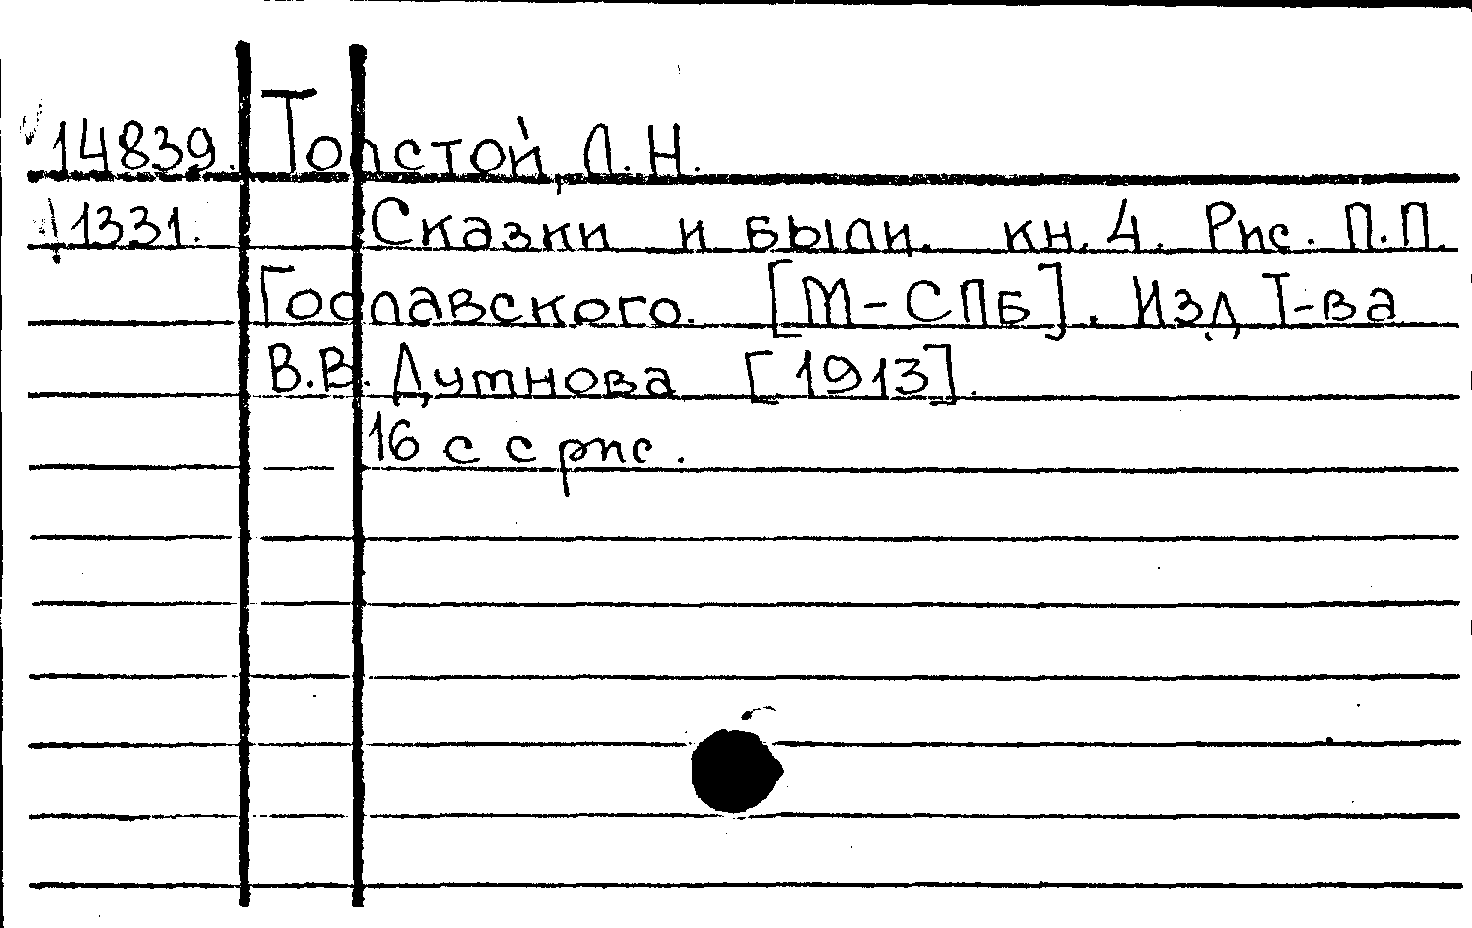 14839. Толстой, Л.Н.
1331. Сказки и были. кн. 4. Рис. П.П.
Гославского. [М-СПБ]. Изд Т-ва
В.В. Думнова [1913].
16 с с рис.